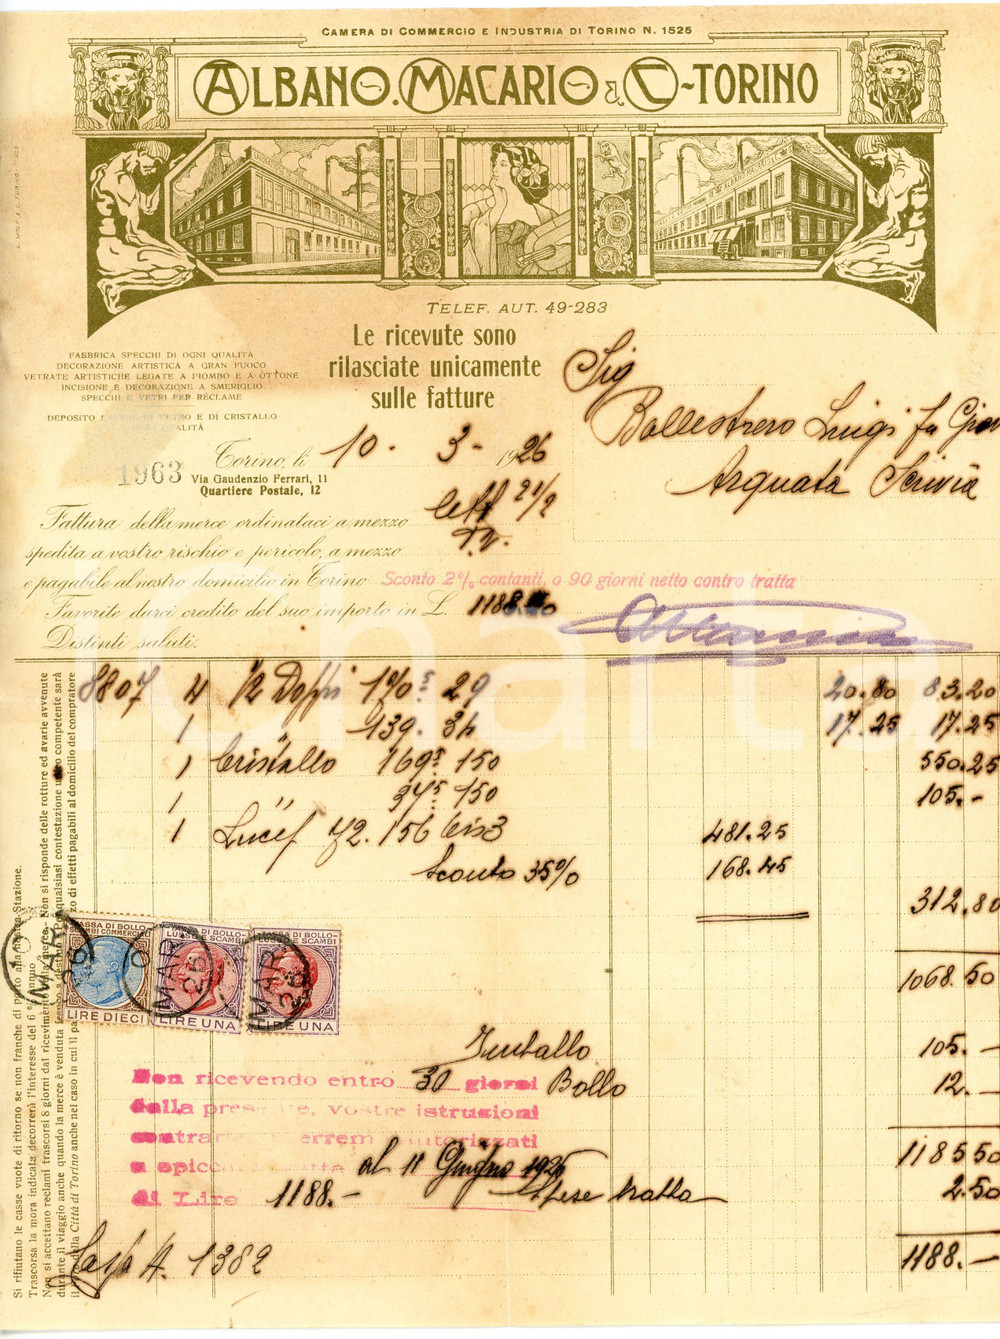 CAMERA DI COMMERCIO E INDUSTRIA DI TORINO N. 1525
ALBANO. MACARIO & C-TORINO
TELEF. AUT. 49-283
Le ricevute sono
rilasciate unicamente
sulle fatture
FABBRICA SPECCHI DI OGNI QUALITÀ
DECORAZIONE ARTISTICA A GRAN FUOCO
VETRATE ARTISTICHE LEGATE A PIOMBO E A OTTONE
INCISIONE E DECORAZIONE A SMERIGLIO
SPECCHI E VETRI PER RÉCLAME
DEPOSITO DI VETRO E DI CRISTALLO
Sig
Ballestrero Luigi fu Giov
Arquata Scrivia
Torino, li 10 - 3 - 1926
1963
Via Gaudenzio Ferrari, 11
Quartiere Postale, 12
Fattura della merce ordinataci a mezzo lett 2 1/2
spedita a vostro rischio e pericolo, a mezzo P.V.
e pagabile al nostro domicilio in Torino Sconto 2% contanti, o 90 giorni netto contro tratta
Favorite darci credito del suo importo in L. 1188.
Distinti saluti.
8807 4 1/2 Doppi 170.5 29 20.80 83.20
1 " 139. 34 17.25 17.25
1 Cristallo 169.5 150 550.25
1 " 34.5 150 105.-
1 Lucef 72. 156 bis 3 481.25
Sconto 35% 168.45
312.80
1068.50
TASSA DI BOLLO
SCAMBI COMMERCIALI
LIRE DIECI
TASSA DI BOLLO
LUSSO E SCAMBI
LIRE UNA
TASSA DI BOLLO
LUSSO E SCAMBI
LIRE UNA
10 MAR 26
MAR 26
MAR 26
Imballo 105.-
Non ricevendo entro 30 giorni Bollo 12.-
dalla presente, vostre istruzioni
contrarie autorizzati 1185.50
a spiccare tratta al 11 Giugno 1926
di Lire 1188.- Spese tratta 2.50
1188.-
Cassa N. 1382
Si rifiutano le casse vuote di ritorno se non franche di Porto alla nostra Stazione.
Trascorsa la mora indicata decorrerà l'interesse del 6 % annuo
Non si accettano reclami trascorsi 8 giorni dal ricevimento della merce - Non si risponde delle rotture ed avarie avvenute
durante il viaggio anche quando la merce è venduta franco a destino Per qualsiasi contestazione unico competente sarà
il foro della Città di Torino anche nel caso in cui il pagamento a mezzo di effetti pagabili al domicilio del compratore